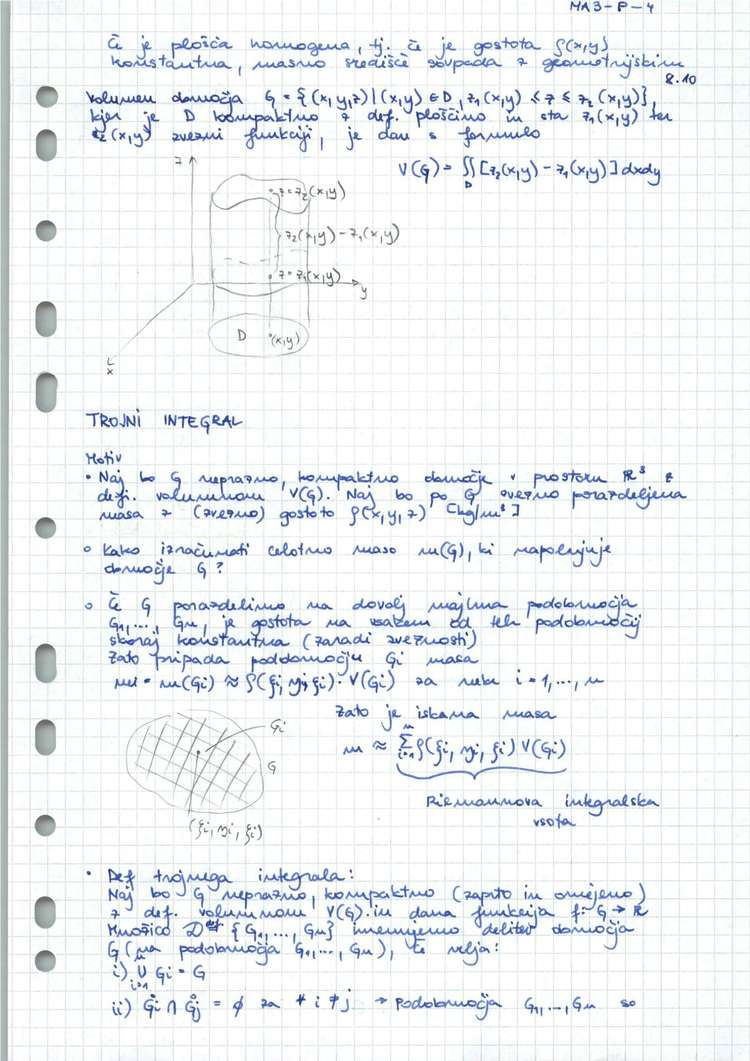 MA3-P-4
Če je plošča homogena, tj. če je gostota ρ(x,y)
konstantna, masno središče sovpada z geometrijskim
8.10
Volumen domočja G = {(x,y,z) | (x,y) ∈ D, z₁(x,y) ≤ z ≤ z₂(x,y)},
kjer je D kompaktno z def. ploščino in sta z₁(x,y) ter
z₂(x,y) zvezni funkciji, je dan s formulo
V(G) = ∬_D [z₂(x,y) - z₁(x,y)] dxdy
z
z = z₂(x,y)
z₂(x,y) - z₁(x,y)
z = z₁(x,y)
y
D (x,y)
x
TROJNI INTEGRAL
Motiv
• Naj bo G neprazno, kompaktno domočje v prostoru ℝ³ z
defi. volumnom V(G). Naj bo po G zvezno porazdeljena
masa z (zvezno) gostoto ρ(x,y,z) [kg/m³]
• Kako izračunati celotno maso m(G), ki napolnjuje
domočje G?
• Če G porazdelimo na dovolj majhna podobmočja
G₁,..., Gₙ, je gostota na vsakem od teh podobmočij
skoraj konstantna (zaradi zveznosti)
Zato pripada poddomočju Gᵢ masa
mᵢ = m(Gᵢ) ≈ ρ(ξᵢ, ηᵢ, ζᵢ)·V(Gᵢ) za neke i = 1,..., n
Gᵢ
G
(ξᵢ, ηᵢ, ζᵢ)
Zato je iskana masa
m ≈ Σᵢ₌₁ⁿ ρ(ξᵢ, ηᵢ, ζᵢ) V(Gᵢ)
Riemannova integralska
vsota
• Def trojnega integrala:
Naj bo G neprazno, kompaktno (zaprto in omejeno)
z def. volumnom V(G) in dana funkcija f: G → ℝ
Množico D = {G₁,..., Gₙ} imenujemo delitev domočja
G (na podobmočja G₁,..., Gₙ), če velja:
i) ⋃ᵢ₌₁ⁿ Gᵢ = G
ii) G̊ᵢ ∩ G̊ⱼ = ∅ za ∀ i ≠ j → Podobmočja G₁,..., Gₙ so